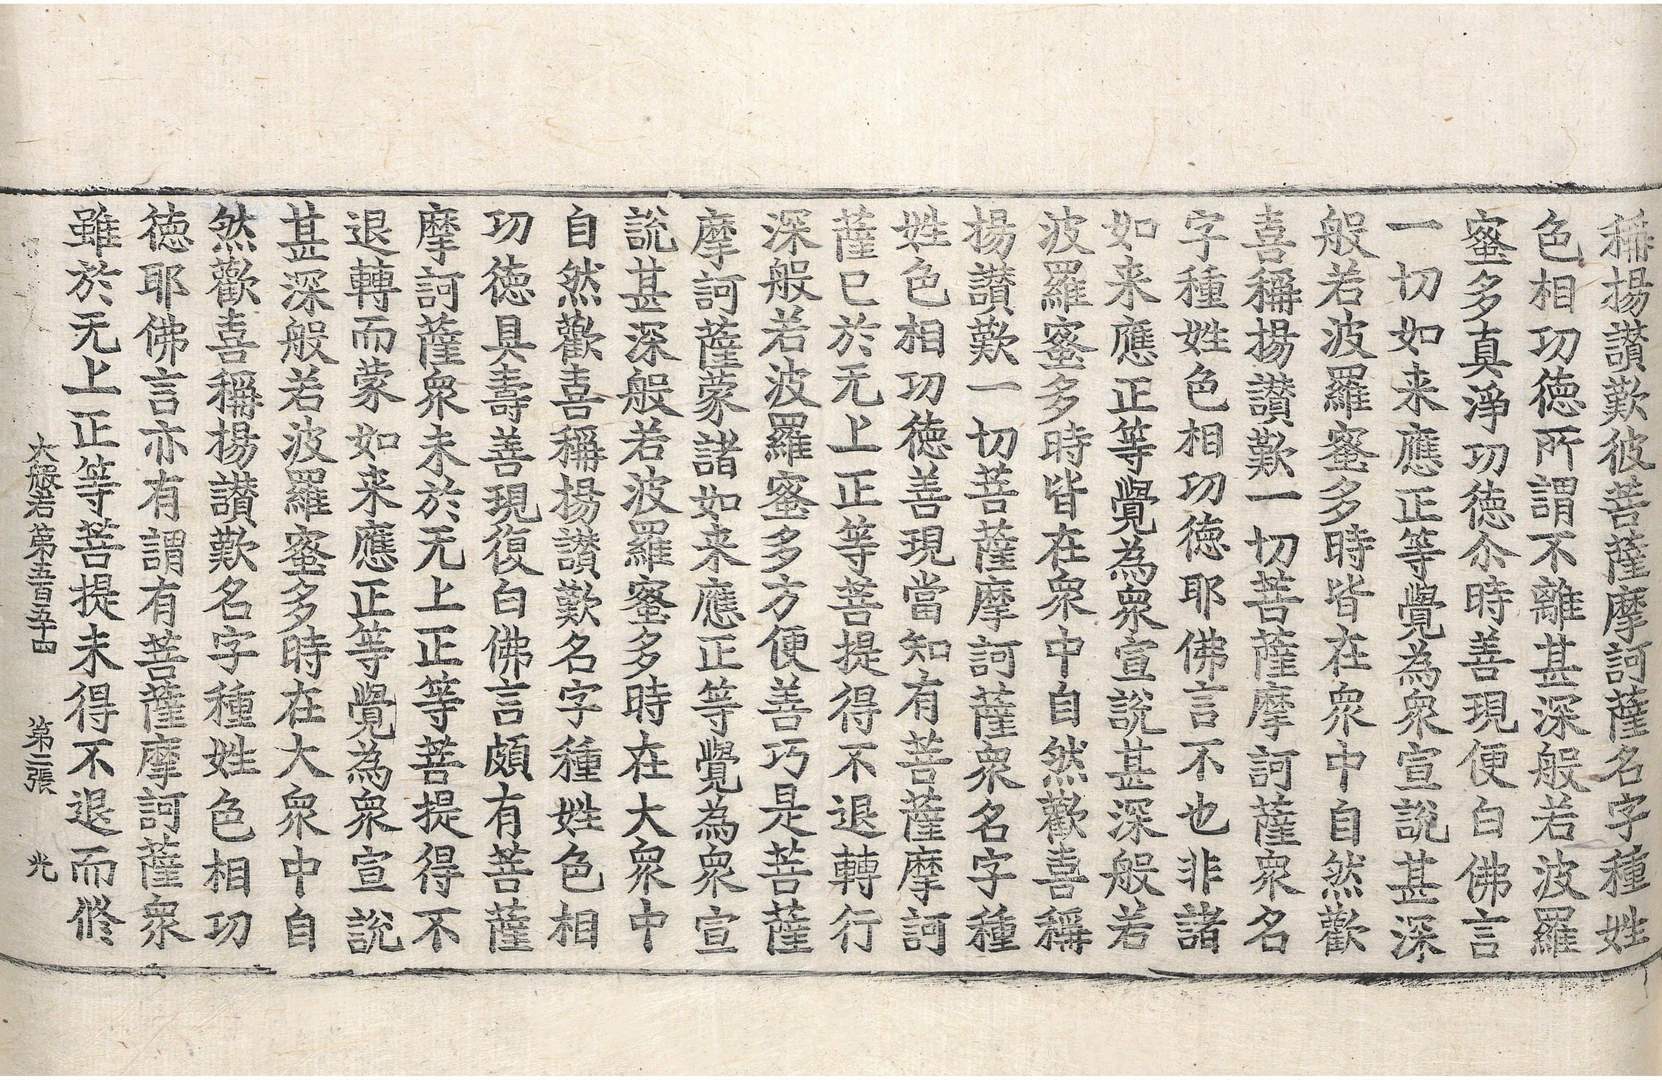 稱揚讃歎彼菩薩摩訶薩名字種姓
色相功徳所謂不離甚深般若波羅
蜜多真淨功徳尒時善現便白佛言
一切如来應正等覺為衆宣說甚深
般若波羅蜜多時皆在衆中自然歡
喜稱揚讃歎一切菩薩摩訶薩衆名
字種姓色相功徳耶佛言不也非諸
如来應正等覺為衆宣說甚深般若
波羅蜜多時皆在衆中自然歡喜稱
揚讃歎一切菩薩摩訶薩衆名字種
姓色相功徳善現當知有菩薩摩訶
薩已於无上正等菩提得不退轉行
深般若波羅蜜多方便善巧是菩薩
摩訶薩蒙諸如来應正等覺為衆宣
說甚深般若波羅蜜多時在大衆中
自然歡喜稱揚讃歎名字種姓色相
功徳具壽善現復白佛言頗有菩薩
摩訶薩衆未於无上正等菩提得不
退轉而蒙如来應正等覺為衆宣說
甚深般若波羅蜜多時在大衆中自
然歡喜稱揚讃歎名字種姓色相功
徳耶佛言亦有謂有菩薩摩訶薩衆
雖於无上正等菩提未得不退而修
大般若第五百五十四 第二張 光